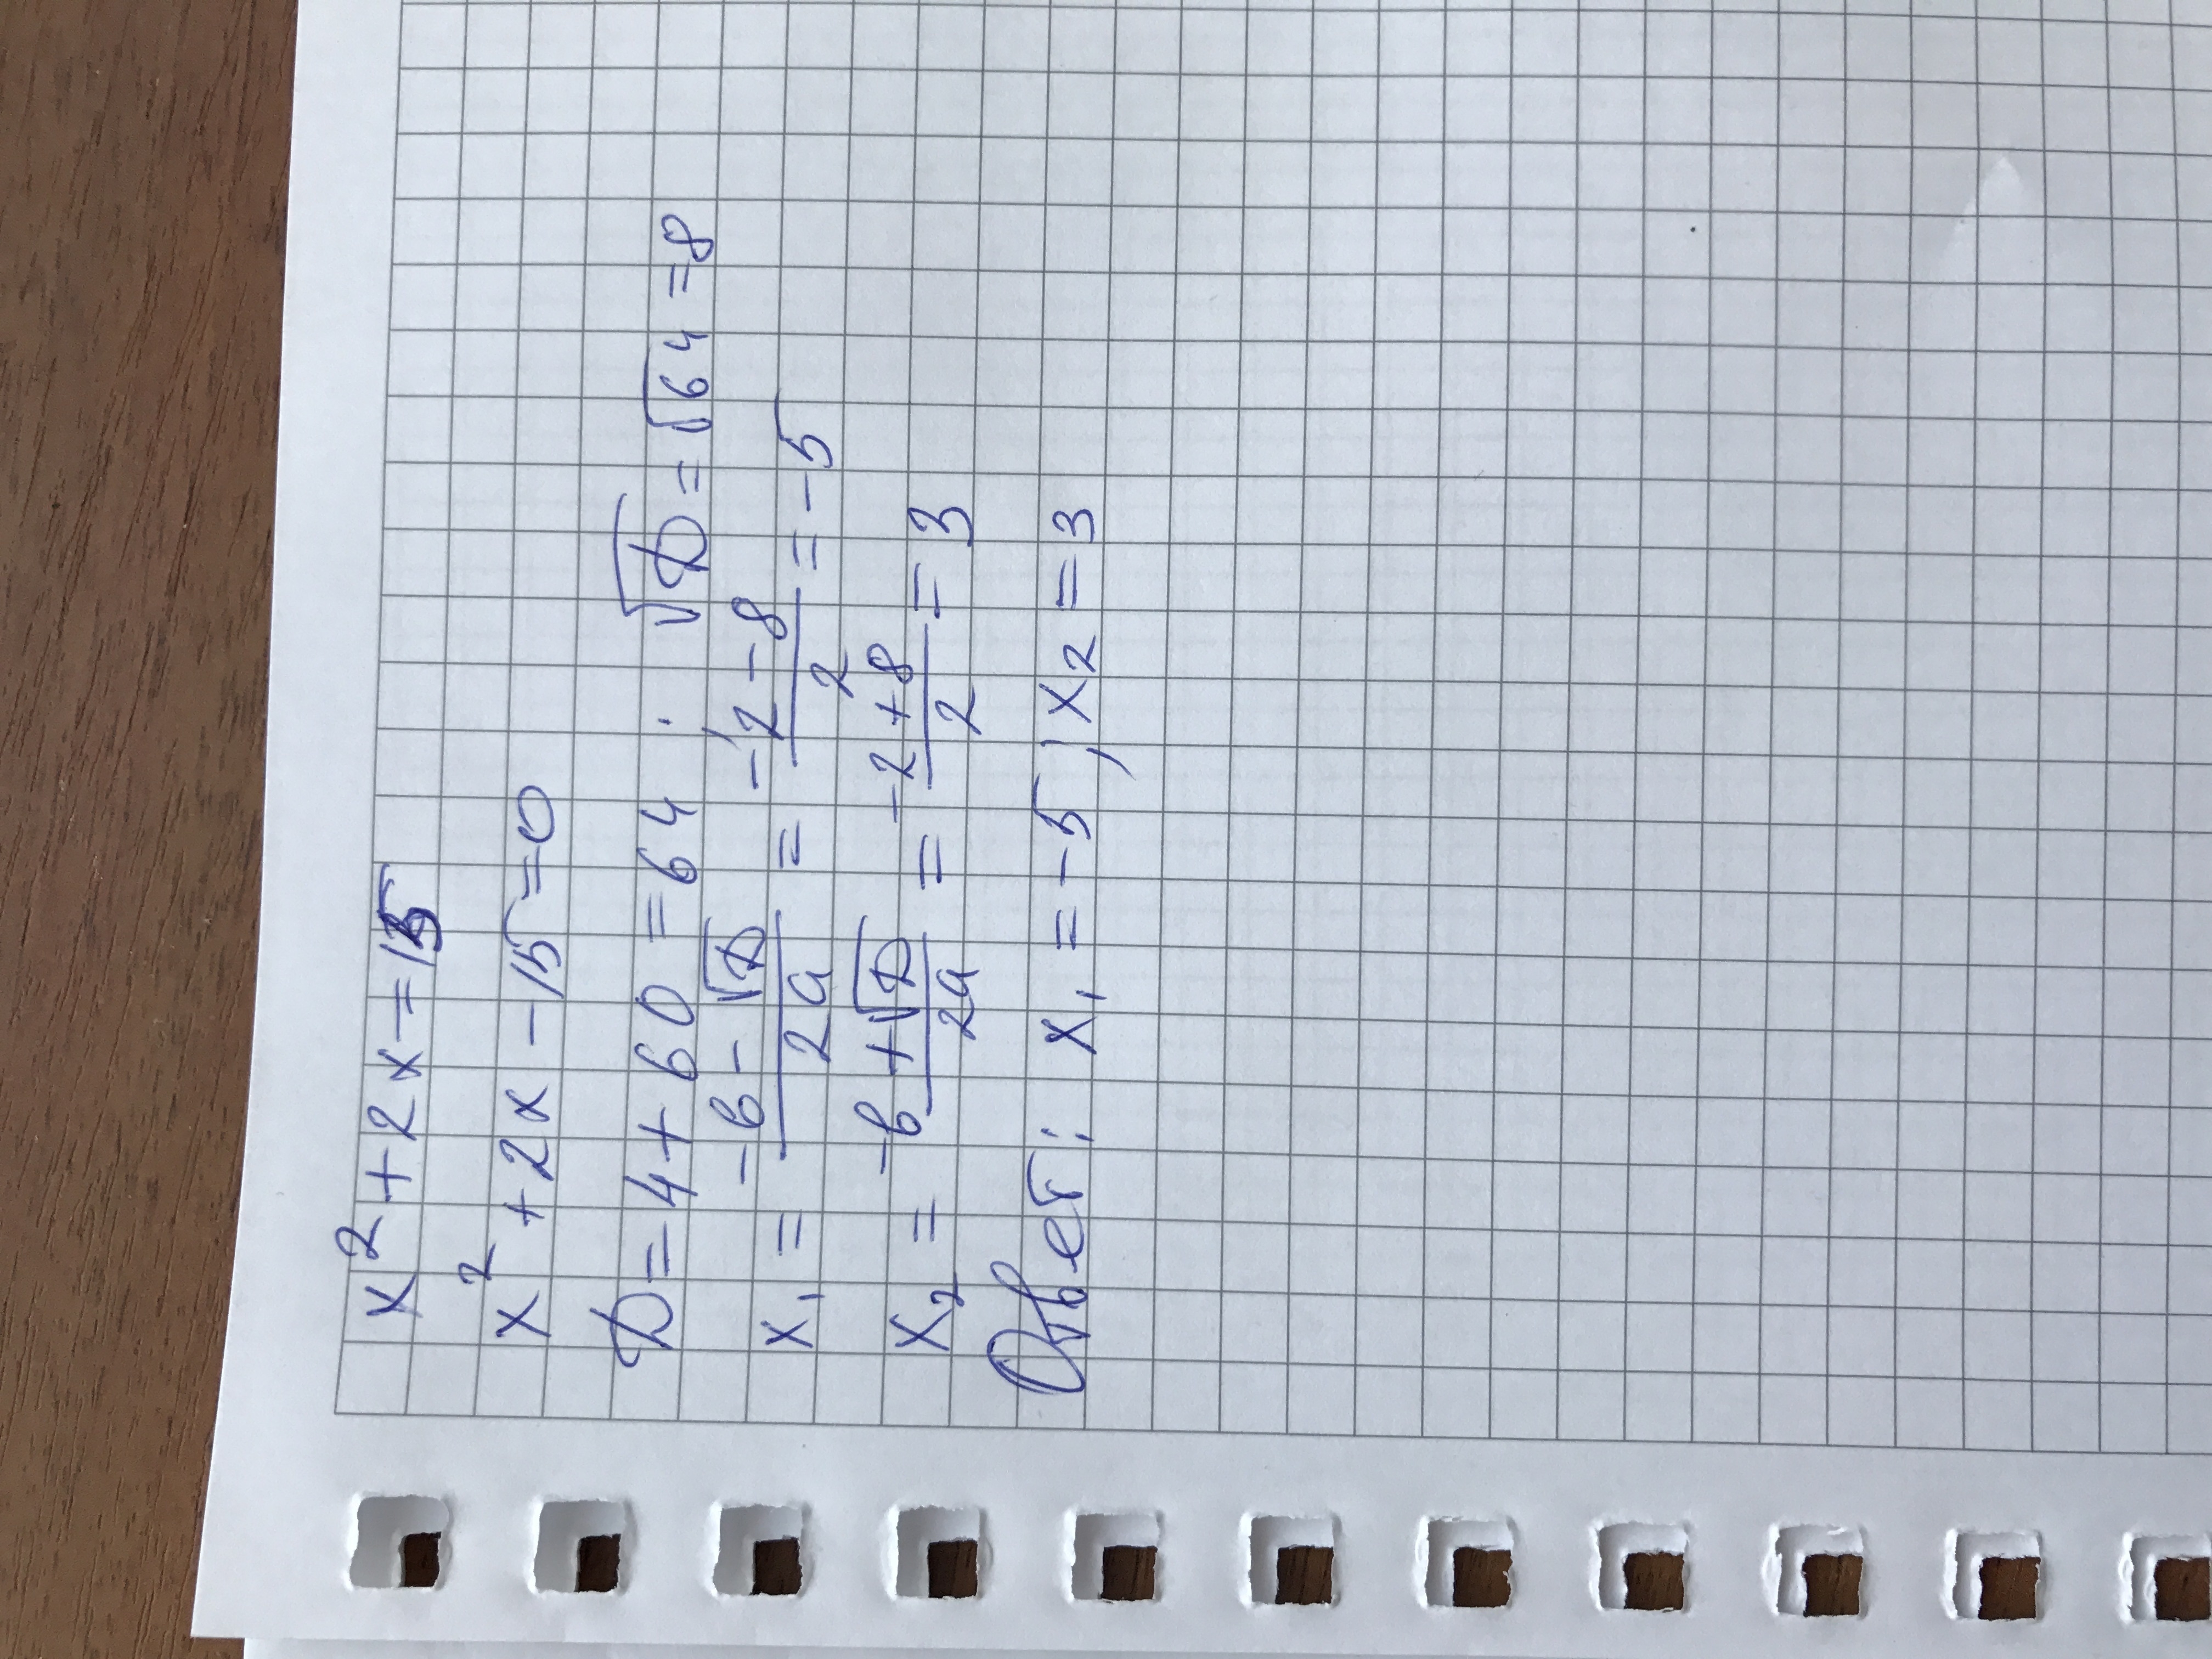 x² + 2x = 15
x² + 2x - 15 = 0
D = 4 + 60 = 64; √D = √64 = 8
x₁ = (-b - √D)/2a = (-2 - 8)/2 = -5
x₂ = (-b + √D)/2a = (-2 + 8)/2 = 3
Ответ: x₁ = -5, x₂ = 3